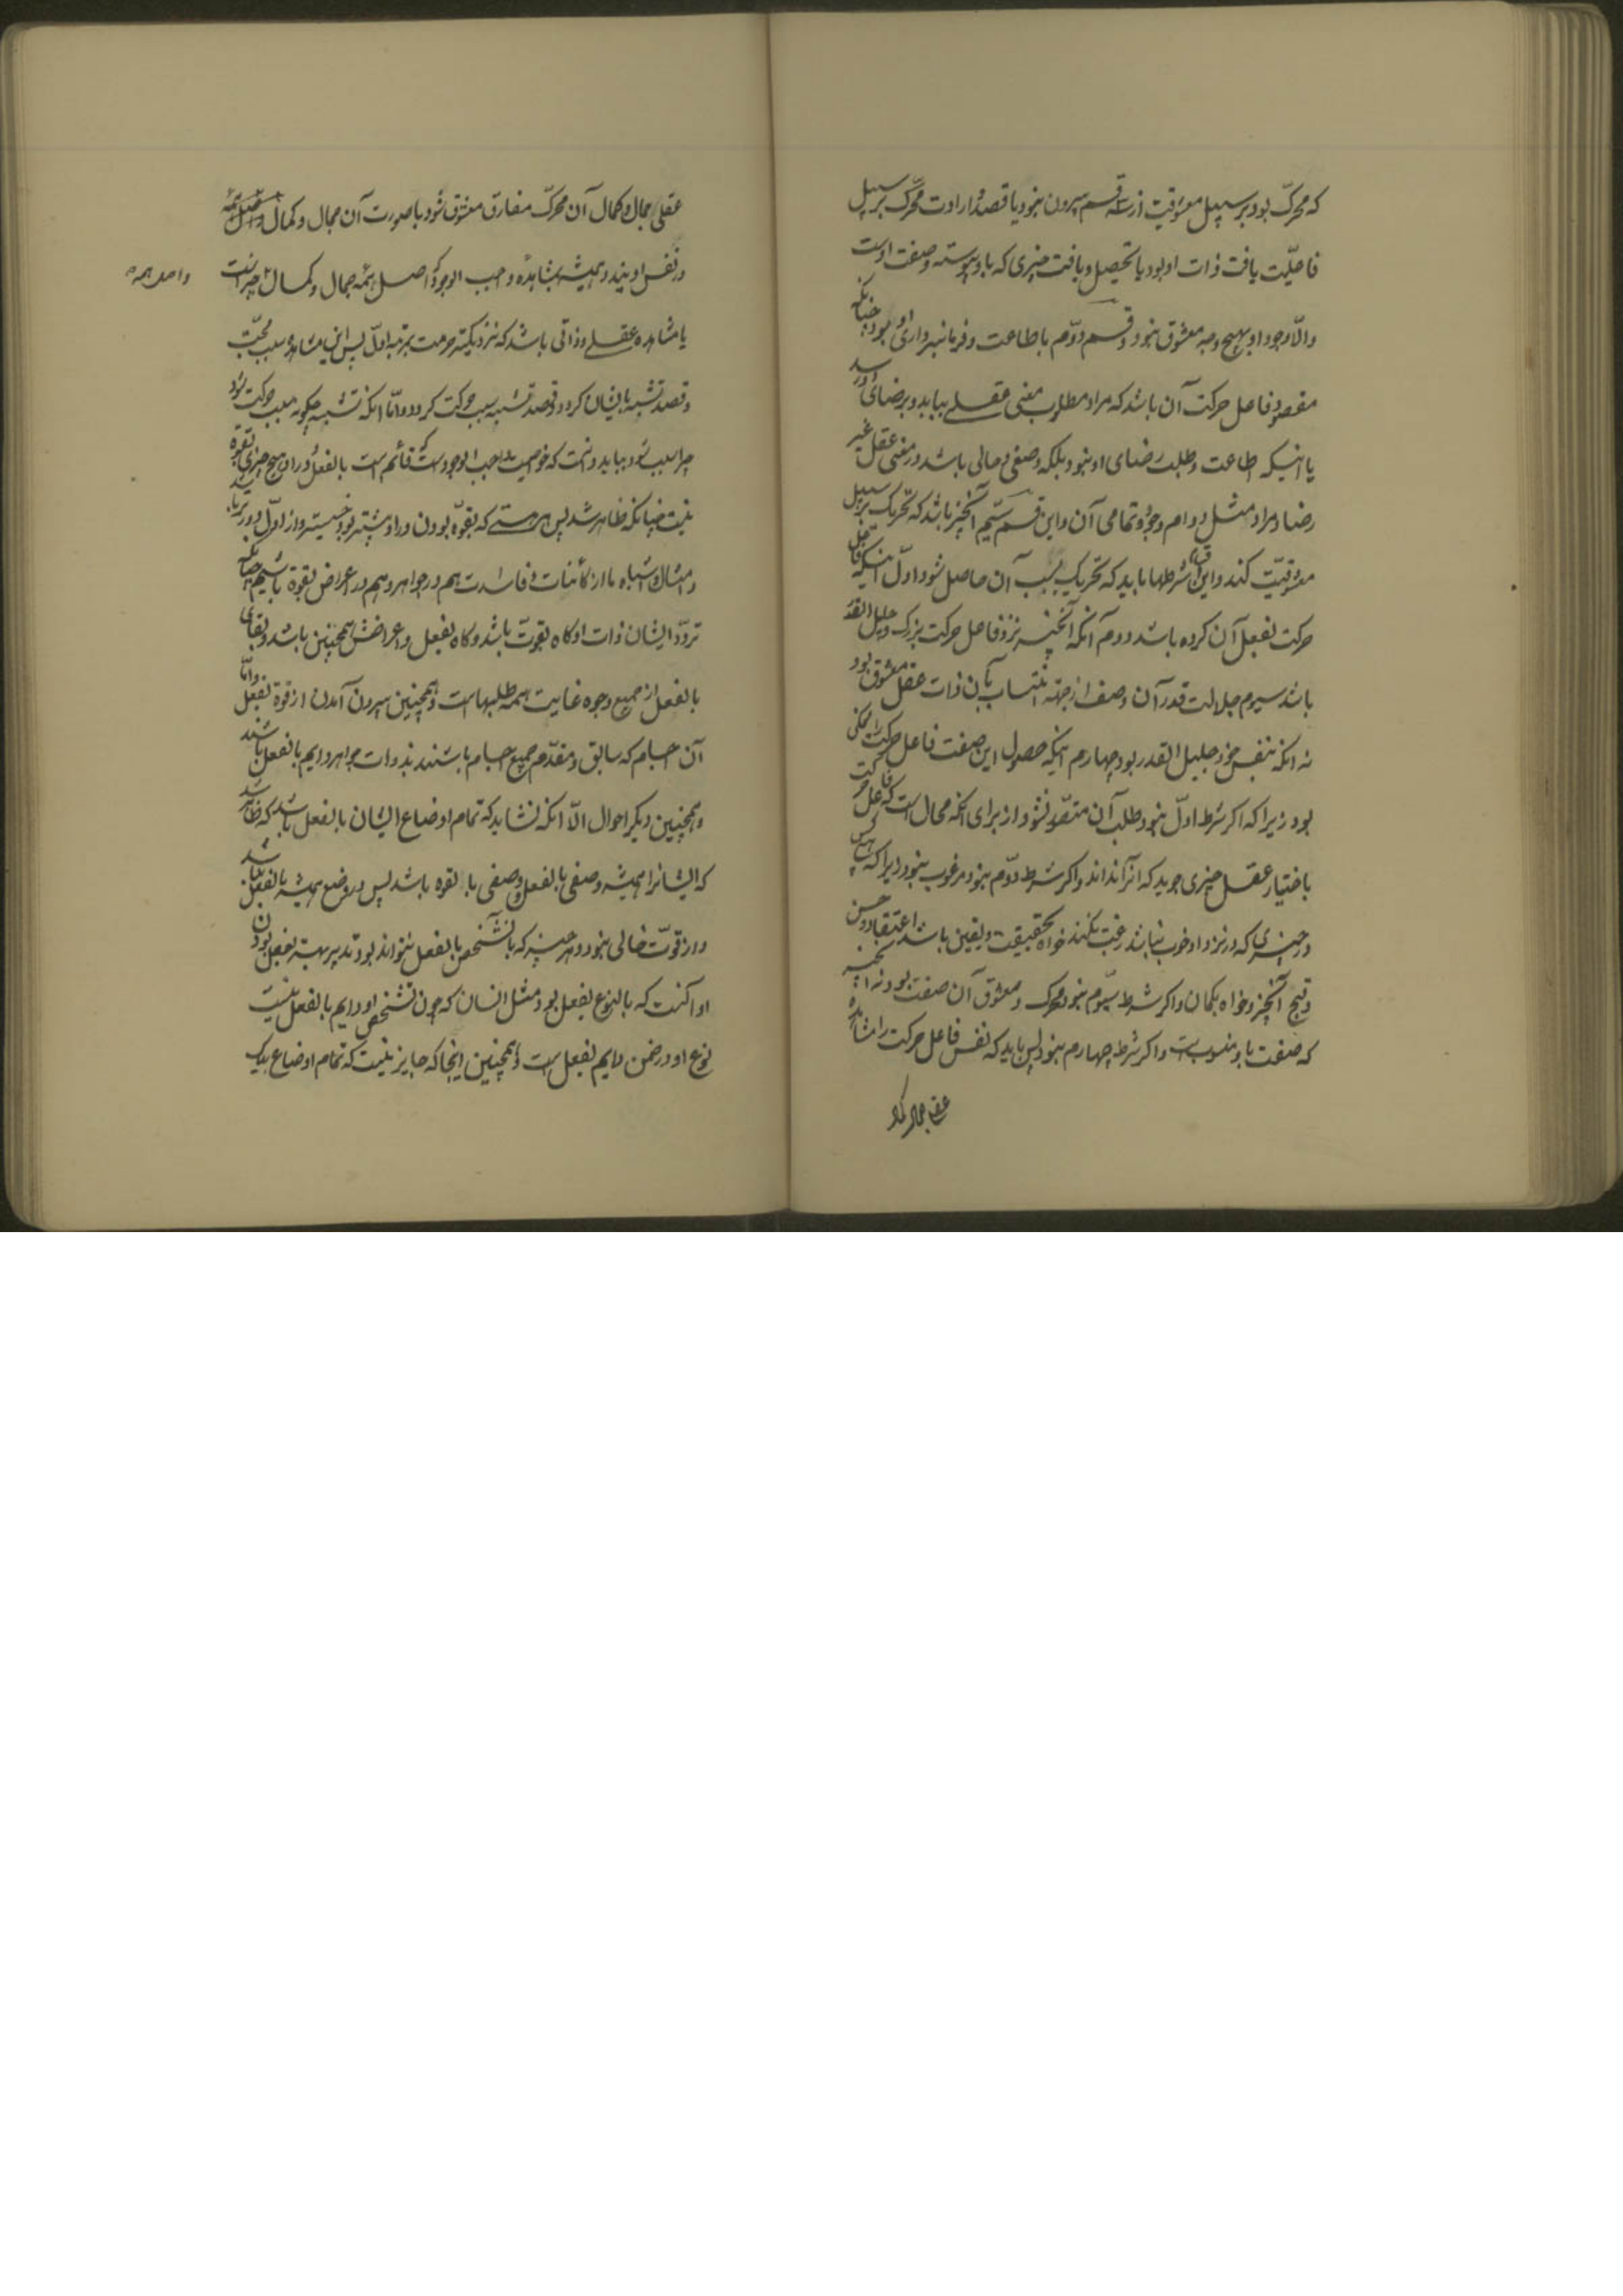 که محرک بود بر سبیل معشوقیت از سه قسم بیرون نبود یا قصد و ارادت محرک بر سبیل
فاعلیت یافت ذات او بود یا تحصیل و یافت چیزی که باو پیوسته و صفت اوست
والا وجود او بهیچ وجه معشوق نبود و قسم دوم با طاعت و فرمانبرداری او بود چنانکه
مقصود فاعل حرکت آن باشد که مراد و مطلوب معنی عقلی بیابد و برضای او رسد
یا اینکه اطاعت و طلب رضای او نبود بلکه وصفی و حالی باشد در معنی عقل غیر
رضا و مراد مثل دوام وجود و تمامی آن و این قسم سیم آنچیز باشد که تحریک بر سبیل
معشوقیت کند و این شرطها باید که تحریک بسبب آن حاصل شود اول اینکه
حرکت بفعل آن کرده باشد دوم آنکه آنچیز نزد فاعل حرکت بزرک و جلیل القدر
باشد سیوم جلالت قدر آن وصف از جهة انتساب بآن ذات عقل معشوق بود
نه آنکه بنفس خود جلیل القدر بود چهارم اینکه حصول این صفت فاعل حرکت را ممکن
بود زیرا که اکر شرط اول نبود طلب آن متصور نشود از برای آنکه محال است که فاعل حرکت
باختیار عقل چیزی جوید که آنرا نداند و اکر شرط دوم نبود مرغوب نبود زیرا که هیچ کس
در چیزی که در نزد او خوب نباشد رغبت نکند خواه بحقیقت و یقین باشد اعتقاد و حسن
و قبح آنچیز و خواه بکمان و اکر شرط سیوم نبود محرک و معشوق آن صفت بود نه آنچیز
که صفت باو منسوبست و اکر شرط چهارم نبود پس باید که نفس فاعل حرکت را مشاهده
عقلی جمال و کمال آن محرک مفارق معشوق شود با صورت آن جمال و کمال
در نفس او بیند و همیشه بمشاهده واجب الوجود که اصل همه جمال و کمال
واصل همه
یا مشاهده عقلی و ذاتی باشد که نزدیکتر مرتبه بمرتبه اول پس این مشاهده سبب محبت
و قصد تشبه بایشان کردد و قصد تشبه سبب حرکت کردد و اما آنکه تشبه چکونه سبب حرکت شود
چرا سبب شود بباید دانست که خواصیت واجب الوجود آنست که قائم است بالفعل و در او هیچ چیزی بقوة
نیست چنانکه ظاهر شد پس هر هستی که بقوة بودن در او بیشتر بود خسیستر و از اول دورتر باشد
و امثال و اشباه ما از کائنات فاسدات هم در جواهر و هم در اعراض بقوة باشیم چنانکه
تردد ایشان ذات او کاه بقوت باشد و کاه بفعل و اعراضش همچنین باشد و بقای
بالفعل از جمیع وجوه غایت همه طلبهاست و همچنین بیرون آمدن از قوة بفعل و اما
آن اجسام که سابق و مقدم جمیع اجسام باشند بذوات جواهر دایم بالفعل باشند
و همچنین دیکر احوال الا آنکه نشاید که تمام اوضاع ایشان بالفعل باشد که ظاهر شد
که ایشانرا همیشه وصفی بالفعل و صفی بالقوه باشد پس در وضع همیشه بالفعل نباشد
و از قوت خالی نبود و هر چیز که بالشخص بالفعل نتواند بود تدبیر همیشه بفعل بودن
او آنست که بالنوع بفعل بود مثل انسان که چون تشخص او دایم بالفعل نیست
نوع او در ضمن دایم بفعل است و همچنین اینجا که جایز نیست که تمام اوضاع بیک